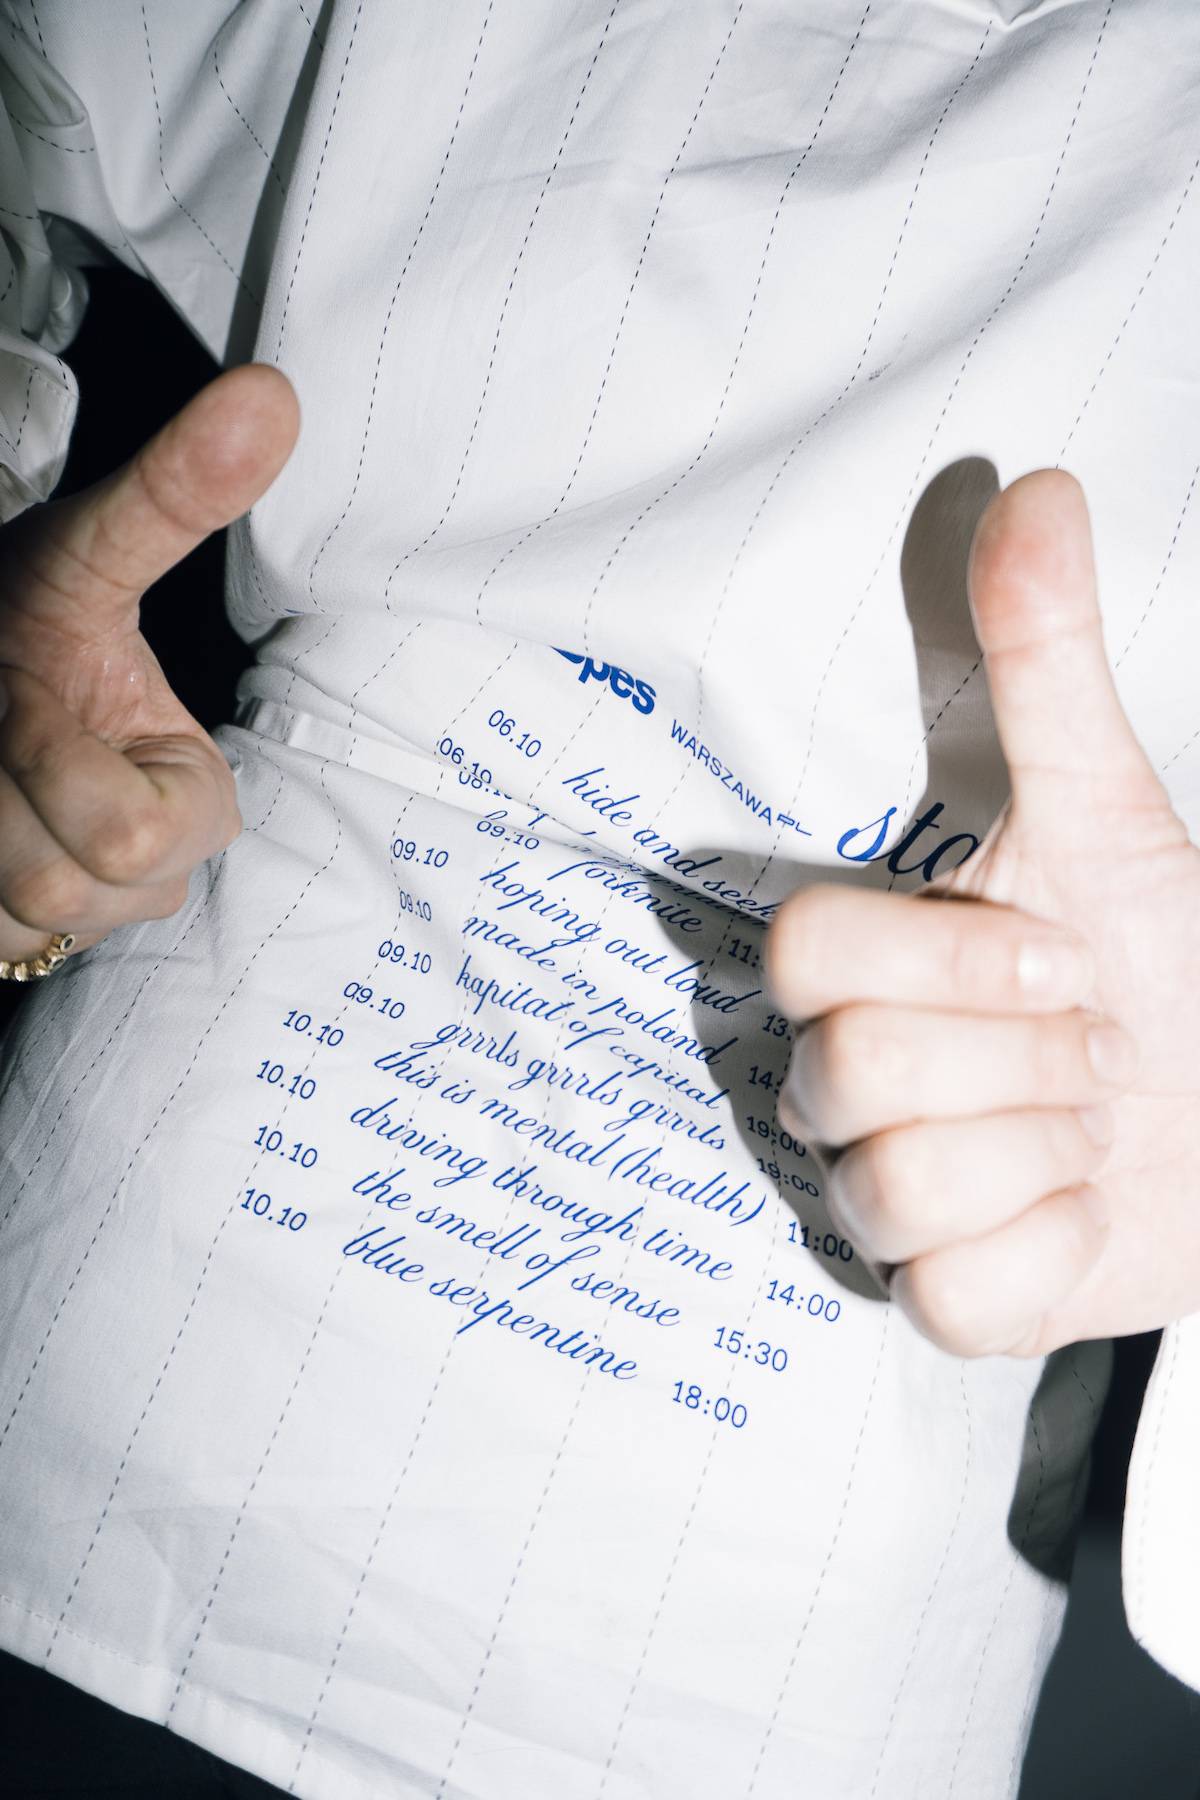 pes WARSZAWA PL sto
06.10 hide and seek
06.10
09.10 forknite 11:
09.10 hoping out loud 13:
09.10 made in poland 14:
09.10 kapitał of capital 19:00
09.10 grrrls grrrls grrrls 19:00
10.10 this is mental (health) 11:00
10.10 driving through time 14:00
10.10 the smell of sense 15:30
10.10 blue serpentine 18:00